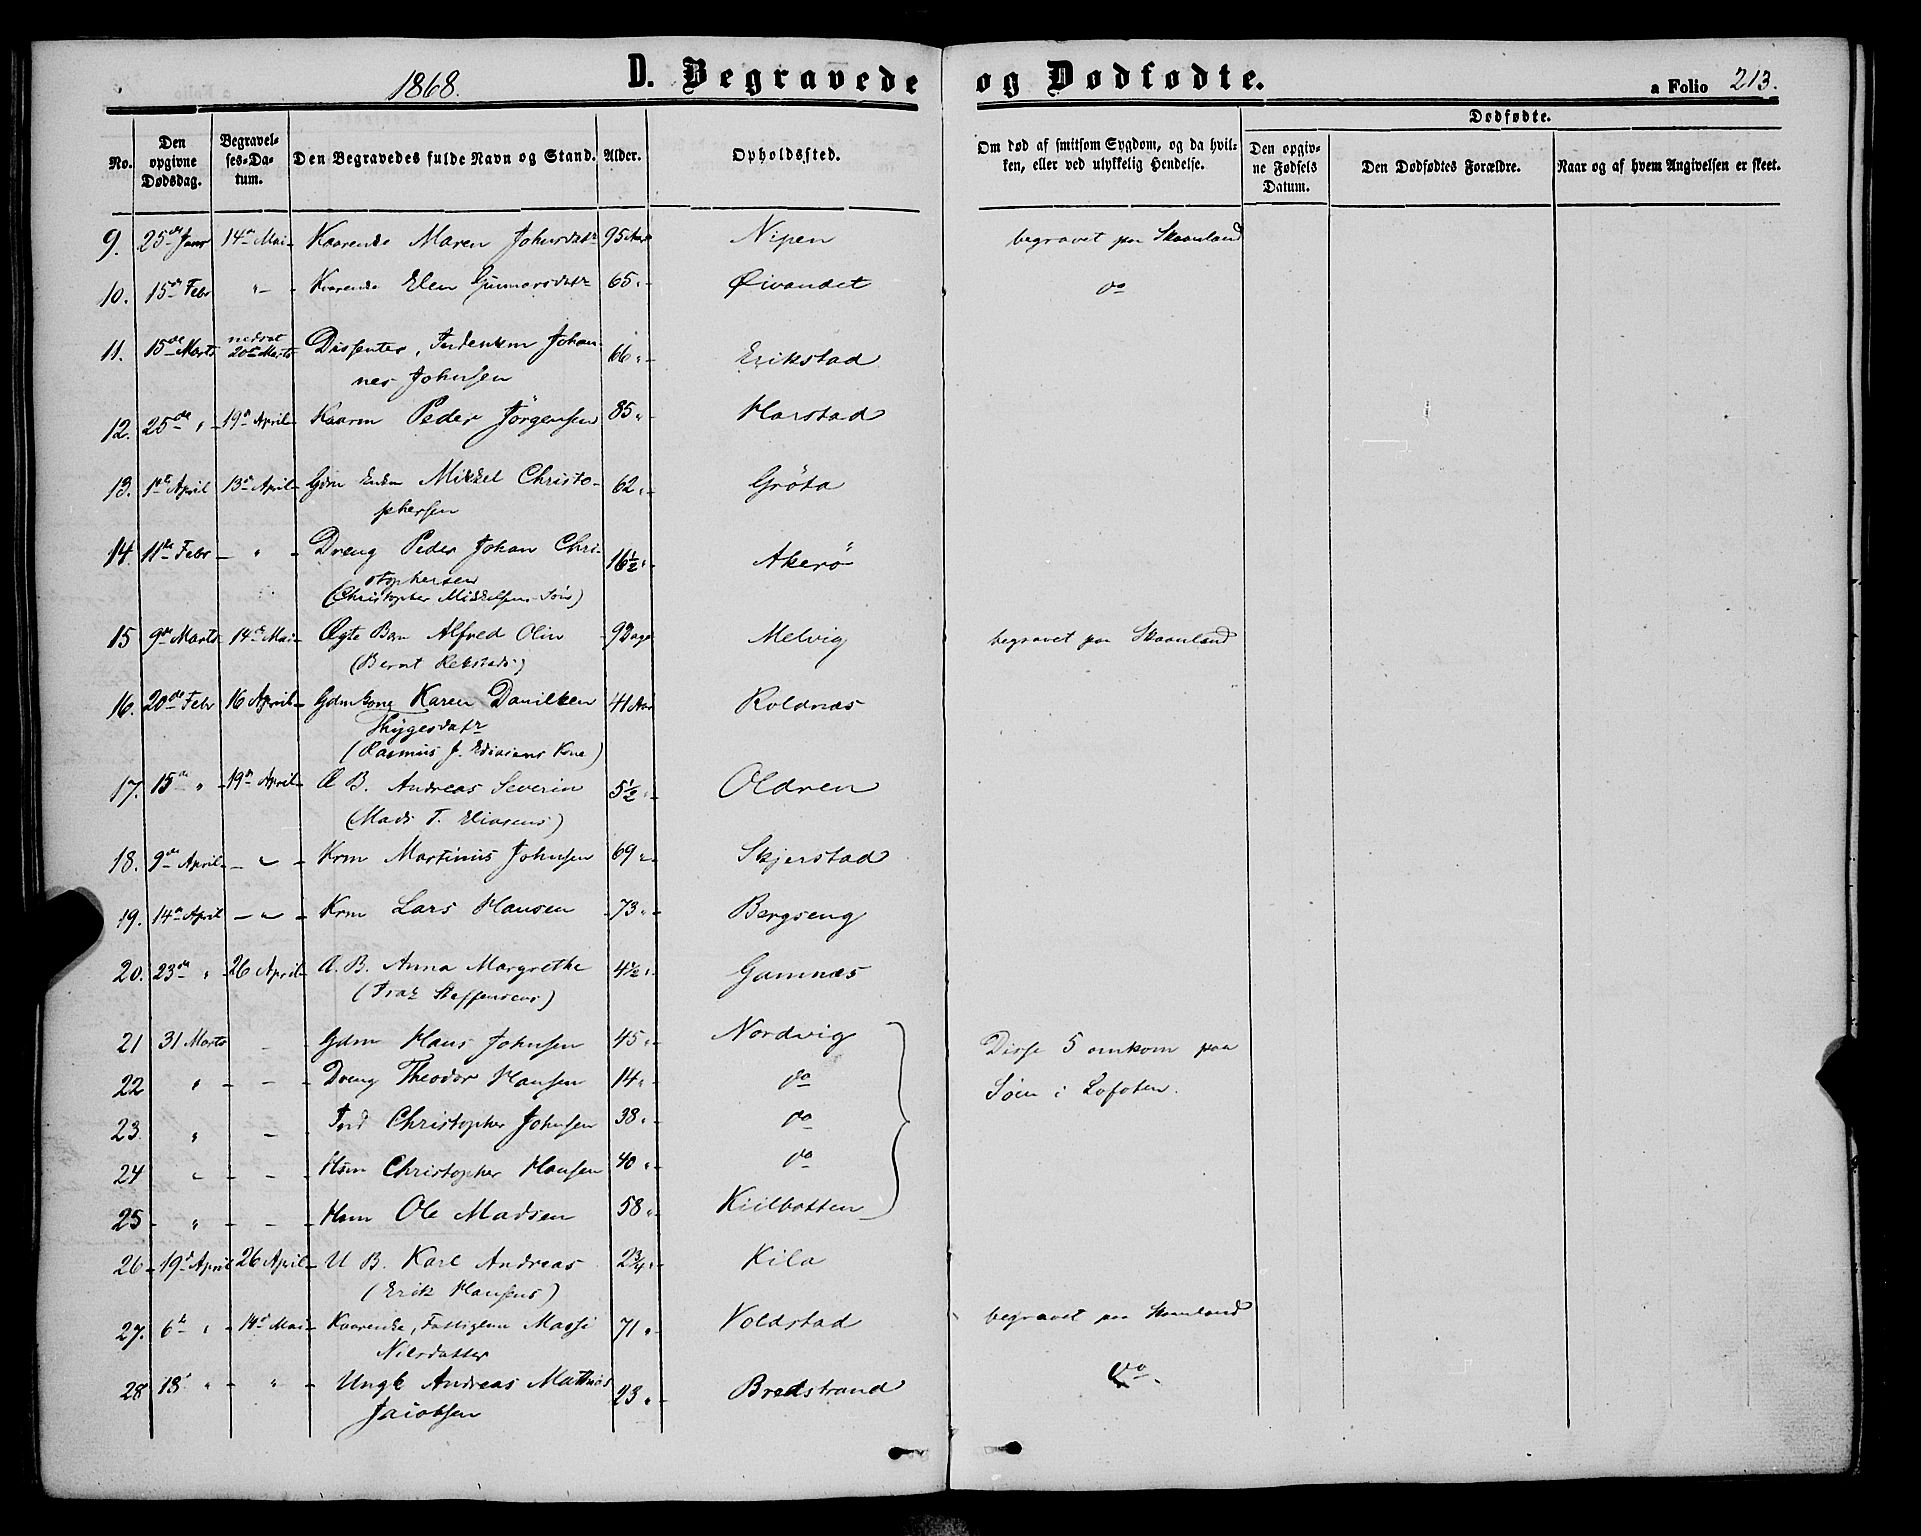 1868. D. Begravede og Dødfødte. a Folio 213.
No. Den opgivne Dødsdag. Begravelses-Datum. Den Begravedes fulde Navn og Stand. Alder. Opholdssted. Om død af smitsom Sygdom, og da hvilken, eller ved ulykkelig Hendelse. Dødfødte. Den opgivne Fødsels Datum. Den Dødfødtes Forældre. Naar og af hvem Angivelsen er skeet.
9. 25de Janr 14de Mai Kaarenke Maren Johnsdatr 95 Aar Nipen begravet paa Skaanland
10. 15de Febr " Kaarenke Elen Gunnarsdatr 65 " Øivandet do
11. 15de Marts nedsat 20de Marts Dissenter, Inderstm Johan-
nes Johnsen 66 " Erikstad
12. 25de " 19de April Kaarm Peder Jörgensen 85 " Harstad
13. 1ste April 13de April Gdm Enkm Mikkel Christo-
phersen 62 " Gröta
14. 11te Febr " Dreng Peder Johan Chri-
stophersen 16½ " Akerö
(Christopher Mikkelsens Søn)
15 9de Marts 14de Mai Ægte Barn Alfred Olin 9 Dage Melvig begravet paa Skaanland
(Bernt Rekstads)
16. 20de Febr 16 April Gdmkone Karen Danilken 41 Aar Roldnæs
Thygesdatr
(Rasmus J. Kone)
17. 15de " 19de April Æ B. Andreas Severin 5½ " Oldren
(Mads T. Eliasens)
18. 9de April " Krm Martinus Johnsen 69 " Skjerstad
19. 14de April " Krm Lars Hansen 73 " Bergseng
20. 23de " 26 April Æ. B. Anna Margrethe 4½ " Gamnæs
(Isak Steffensens)
21 31 Marts - Gdm Hans Johnsen 45 " Nordvig Disse 5 omkom paa
22 " - Dreng Theodor Hansen 14 " do Søen i Lofoten.
23. " - Ind Christopher Johnsen 38 " do
24 " - Hsm Christopher Hansen 40 " do
25 " - Hsm Ole Madsen 58 " Kiilbotten
26 19de April 26 April U B. Karl Andreas 2¾ " Kila
(Erik Hansens)
27. 6te " 14de Mai Kaarenke, Fattiglem Massi 71 " Voldstad begravet paa Skaanland
Nilsdatter
28 18 " " Ungk Andreas Mathias 23 " Bredstrand do
Jacobsen